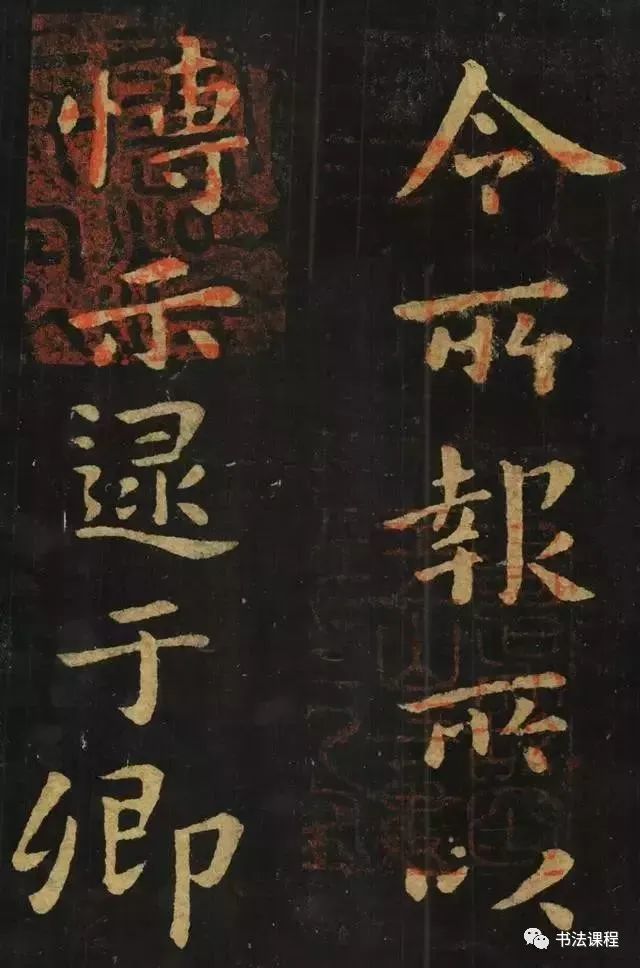 令所報所以
愽示逮于卿
书法课程